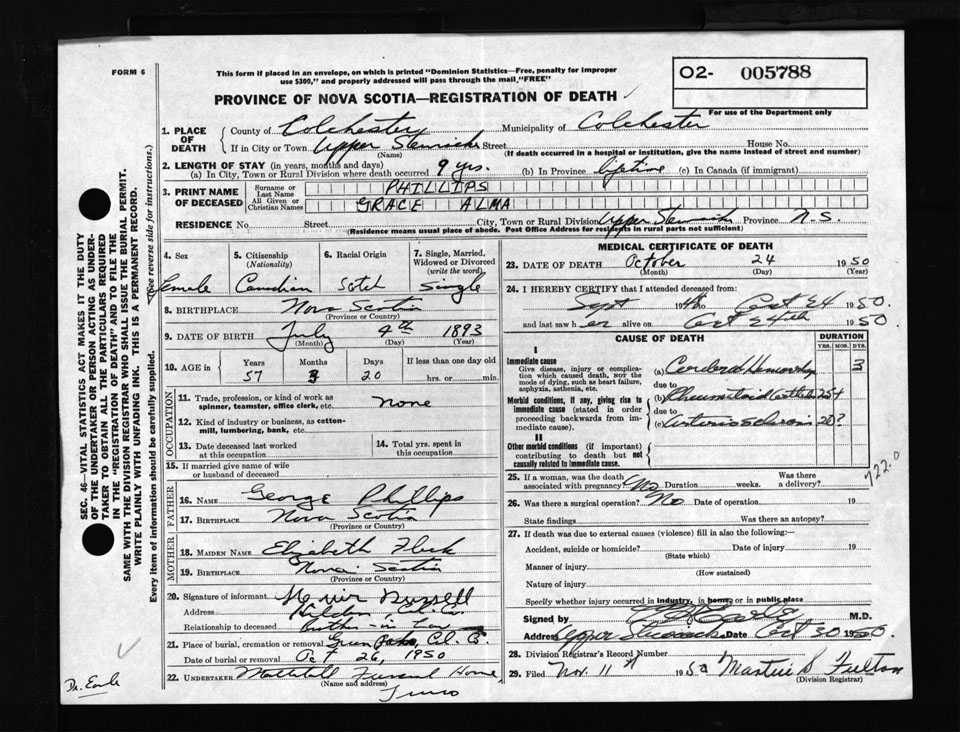 FORM 6
This form if placed in an envelope, on which is printed "Dominion Statistics—Free, penalty for improper
use $300," and properly addressed will pass through the mail, "FREE"
O2- 005788
For use of the Department only
PROVINCE OF NOVA SCOTIA—REGISTRATION OF DEATH
1. PLACE OF DEATH
County of Colchester Municipality of Colchester
If in City or Town Upper Street House No.
(Name) (If death occurred in a hospital or institution, give the name instead of street and number)
2. LENGTH OF STAY (in years, months and days)
(a) In City, Town or Rural Division where death occurred 9 yrs. (b) In Province lifetime (c) In Canada (if immigrant)
3. PRINT NAME OF DECEASED
Surname or Last Name PHILLIPS
All Given or Christian Names GRACE ALMA
RESIDENCE No. Street City, Town or Rural Division Upper Province N.S.
(Residence means usual place of abode. Post Office Address for residents in rural parts not sufficient)
4. Sex 5. Citizenship (Nationality) 6. Racial Origin 7. Single, Married, Widowed or Divorced (write the word)
female Canadian Scotch Single
8. BIRTHPLACE Nova Scotia
(Province or Country)
9. DATE OF BIRTH July 4th 1893
(Month) (Day) (Year)
10. AGE in Years Months Days If less than one day old
57 3 20 hrs. or min.
OCCUPATION
11. Trade, profession, or kind of work as spinner, teamster, office clerk, etc. None
12. Kind of industry or business, as cotton-mill, lumbering, bank, etc.
13. Date deceased last worked at this occupation
14. Total yrs. spent in this occupation
15. If married give name of wife or husband of deceased
FATHER
16. NAME George Phillips
17. BIRTHPLACE Nova Scotia
(Province or Country)
MOTHER
18. MAIDEN NAME Elizabeth
19. BIRTHPLACE Nova Scotia
(Province or Country)
20. Signature of informant
Address Hilden, Col. Co.
Relationship to deceased Brother-in-law
21. Place of burial, cremation or removal Green Col. Co.
Date of burial or removal Oct 26, 1950
22. UNDERTAKER Funeral Home
(Name and address) Truro
MEDICAL CERTIFICATE OF DEATH
23. DATE OF DEATH October 24 1950
(Month) (Day) (Year)
24. I HEREBY CERTIFY that I attended deceased from:
Sept Oct 24 1950.
and last saw her alive on Oct 24th 1950.
CAUSE OF DEATH DURATION
YRS. MOS. DYS.
I
Immediate cause
Give disease, injury or complication which caused death, not the mode of dying, such as heart failure, asphyxia, asthenia, etc.
(a) Cerebral Hemorrhage 3
due to
Morbid conditions, if any, giving rise to immediate cause (stated in order proceeding backwards from immediate cause).
(b) Rheumatoid Arthritis 25+
due to
(c) Arteriosclerosis 20?
II
Other morbid conditions (if important) contributing to death but not causally related to immediate cause.
722.0
25. If a woman, was the death associated with pregnancy? No Duration weeks. Was there a delivery?
26. Was there a surgical operation? No Date of operation 19
State findings Was there an autopsy?
27. If death was due to external causes (violence) fill in also the following:—
Accident, suicide or homicide? Date of injury 19
(State which)
Manner of injury
(How sustained)
Nature of injury
Specify whether injury occurred in industry, in home, or in public place
Signed by M.D.
Address Upper Date Oct 30 1950.
28. Division Registrar's Record Number
29. Filed Nov. 11th 1950 Fulton
(Division Registrar)
SEC. 46–VITAL STATISTICS ACT MAKES IT THE DUTY
OF THE UNDERTAKER OR PERSON ACTING AS UNDER-
TAKER TO OBTAIN ALL THE PARTICULARS REQUIRED
IN THE "REGISTRATION OF DEATH" AND TO FILE THE
SAME WITH THE DIVISION REGISTRAR WHO SHALL ISSUE THE BURIAL PERMIT.
WRITE PLAINLY WITH UNFADING INK. THIS IS A PERMANENT RECORD.
Every item of information should be carefully supplied. (See reverse side for instructions.)
Dr. Earle